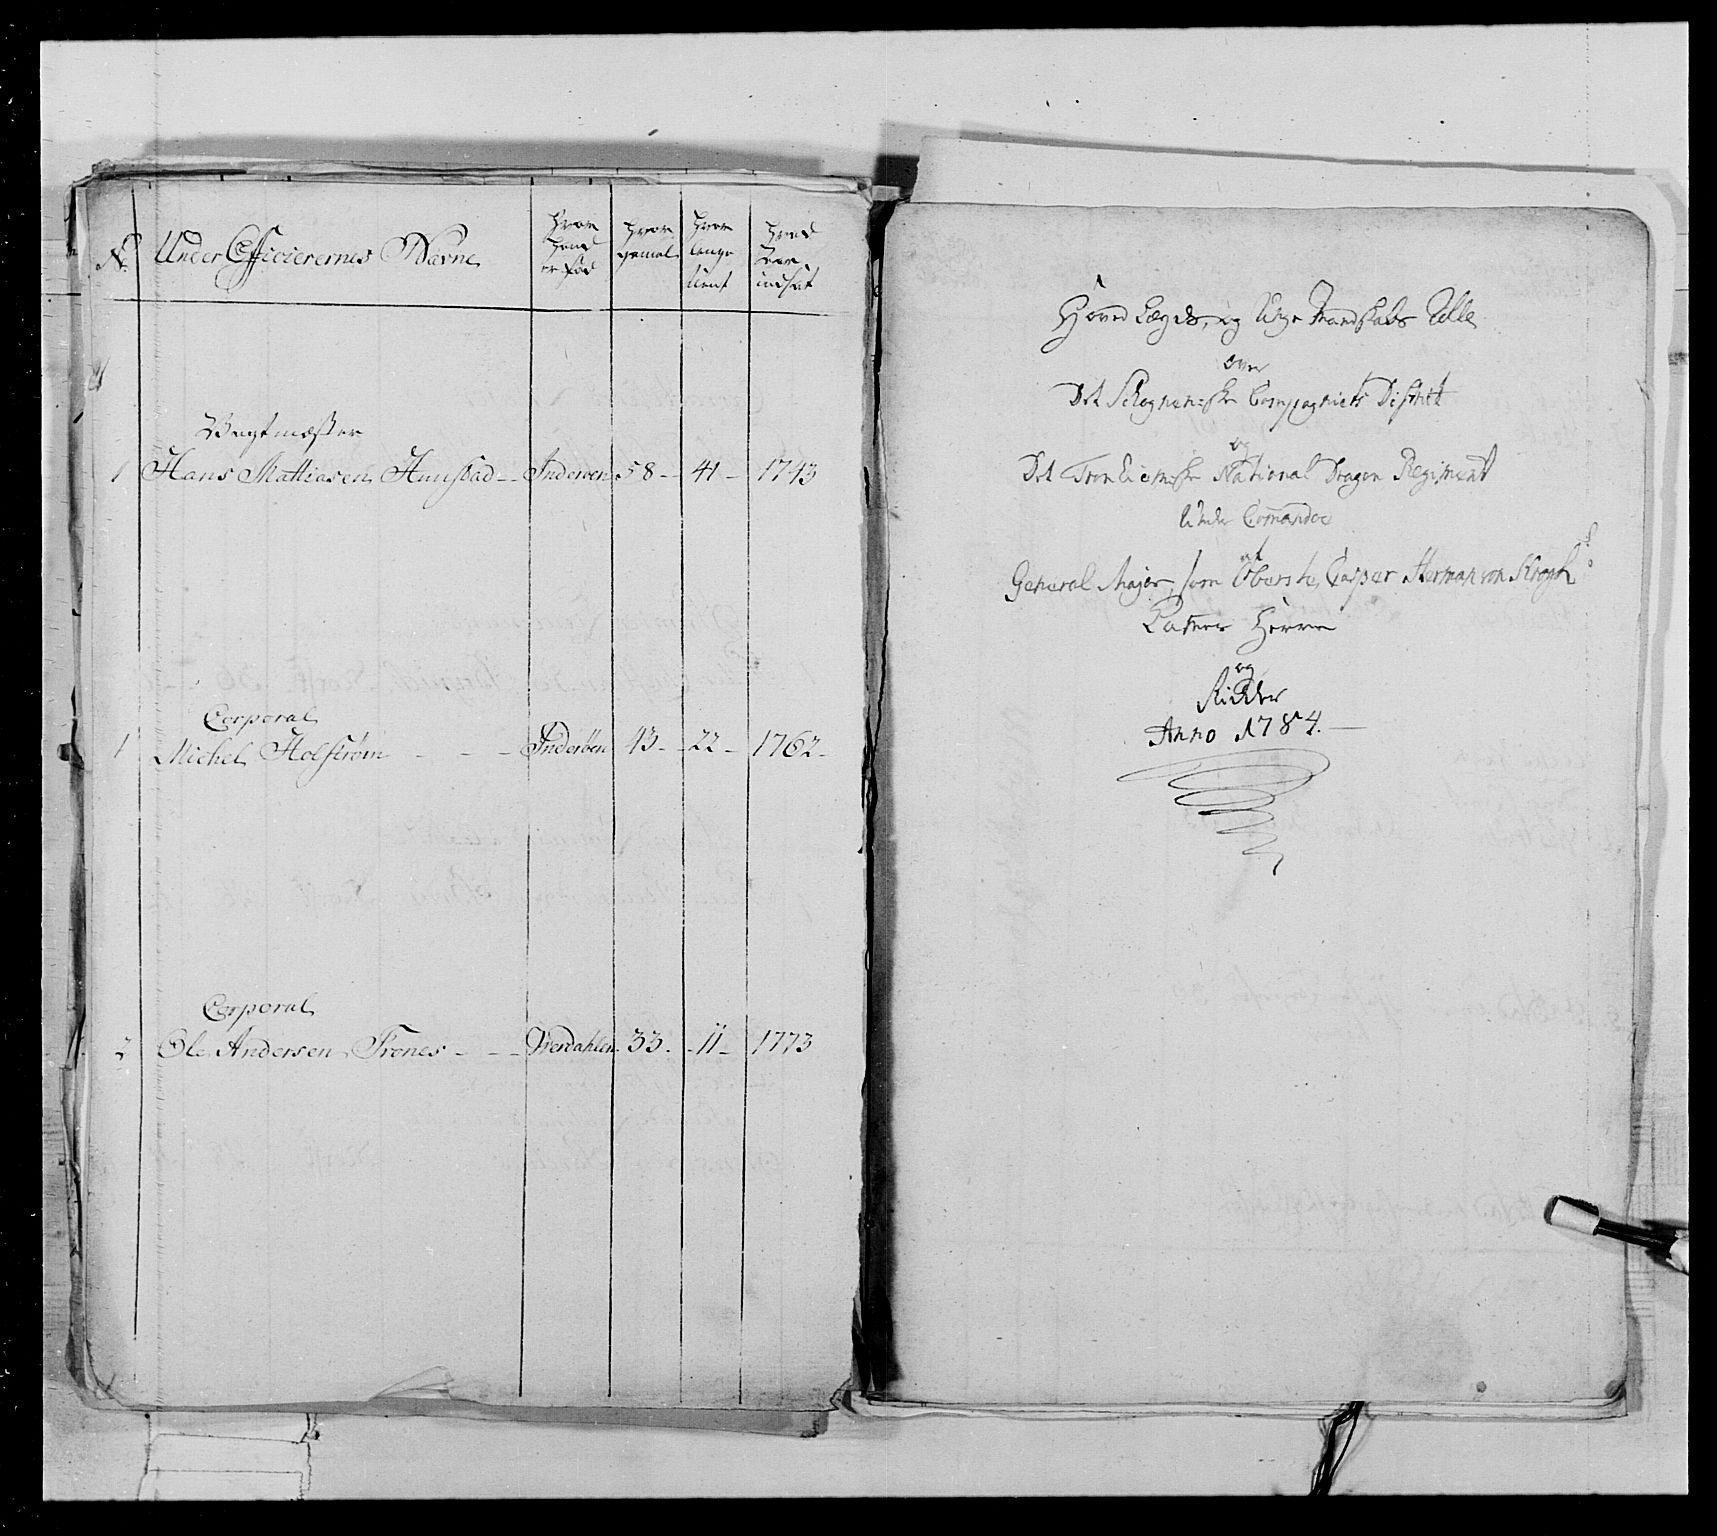 No. Under Officierernes Navne | Hvor hand er fød | Hvor gamel | Hvor lenge tient | Hvad Aar indsat
Vagtmæster
1 Hans Mathiasen Hunstad - - Inderøen 58 - 41 - 1743
Corporal
1 Michel Holstrøm - - - Inderöen 43 - 22 - 1762 -
Corporal
2 Ole Andersen Trones - - - Werdahlen 33 - 11 - 1773
Hoved Lægds, og Unge Mandskabs Rulle
over
Det Schognenske Compagniets District
og
Det Tronhiemske National Dragon Regiment
Under Comandoe
af
General Major, som Oberste, Casper Herman von Krogh
Kamer Herre
og
Ridder
Anno 1784. -